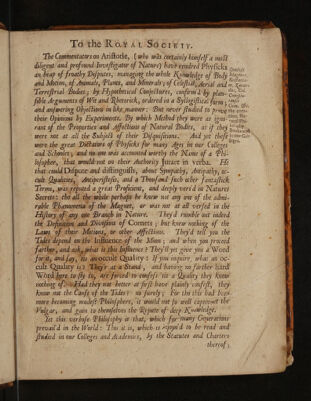 To the ROYAL SOCIETY.
The Commentators on Aristotle, (who was certainly himself a most
diligent and profound Investigator of Nature) have rendred Physicks
an heap of frothy Disputes, managing the whole Knowledge of Body
and Motion, of Animals, Plants, and Minerals; of Celestial, Aerial and
Terrestrial Bodies; by Hypothetical Conjectures, confirm'd by plau-
sible Arguments of Wit and Rhetorick, ordered in a Syllogistical form;
and answering Objections in like manner: But never studied to prove
their Opinions by Experiments. By which Method they were as igno-
rant of the Properties and Affections of Natural Bodies, as if they
were not at all the Subject of their Disquisitions. And yet these
were the great Dictators of Physicks for many Ages in our Colleges
and Schools; and no one was accounted worthy the Name of a Phi-
losopher, that would not on their Authority Jurare in verba. He
that could Dispute and distinguish, about Sympathy, Antipathy, oc-
cult Qualities, Antiperistasis, and a Thousand such other fantastick
Terms, was reputed a great Proficient, and deeply vers'd in Natures
Secrets: tho all the while perhaps he knew not any one of the admi-
rable Phænomena of the Magnet, or was not at all versed in the
History of any one Branch in Nature. They'd rumble out indeed
the Definition and Divisions of Comets; but knew nothing of the
Laws of their Motions, or other Affections. They'd tell you the
Tides depend on the Influence of the Moon; and when you proceed
farther, and ask, what is this Influence? They'll yet give you a Word
for it, and say, its an occult Quality: If you inquire, what an oc-
cult Quality is? They'r at a Stand, and having no farther hard
Word here to fly to, are forced to confess its a Quality they know
nothing of. Had they not better at first have plainly confest, they
know not the Cause of the Tides? no surely; For tho this had been
more becoming modest Philosophers, it would not so well captivate the
Vulgar, and gain to themselves the Repute of deep Knowledge.
Yet this verbose Philosophy is that, which for many Generations
prevail'd in the World: This it is, which is enjoyn'd to be read and
studied in our Colleges and Academies, by the Statutes and Charters
thereof;